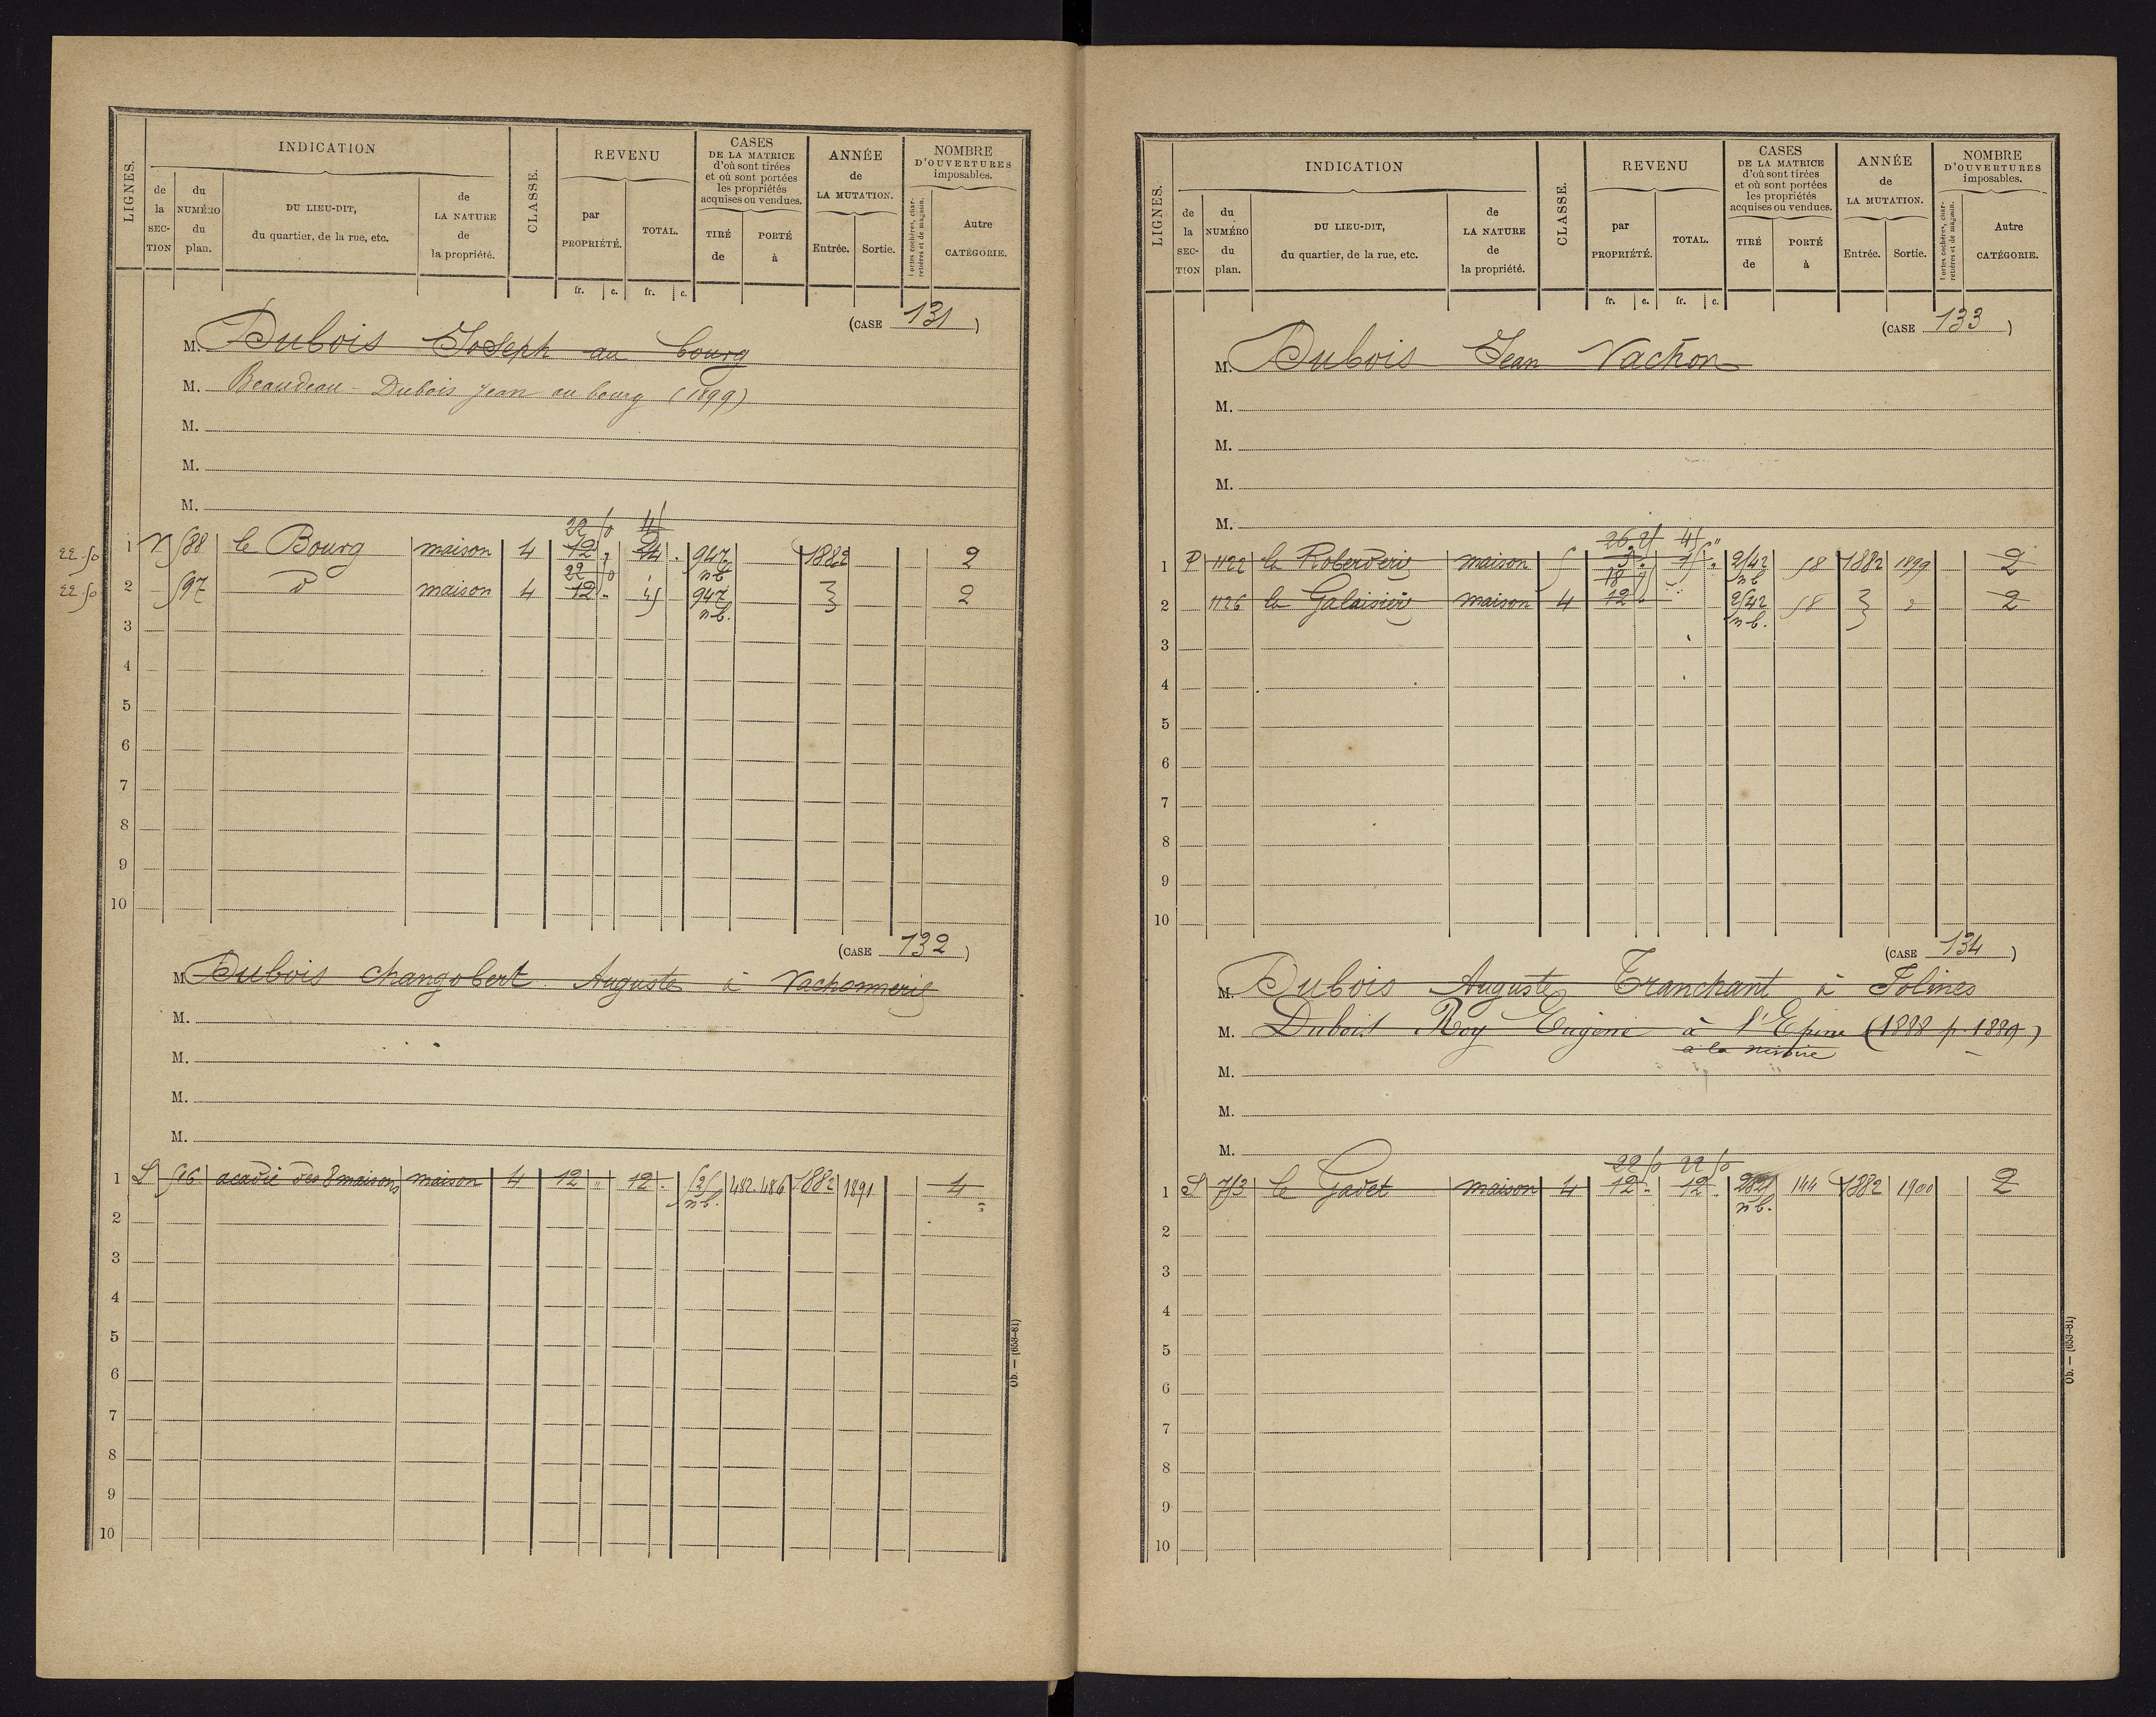 LIGNES. INDICATION CLASSE. REVENU CASES DE LA MATRICE d'où sont tirées et où sont portées les propriétés acquises ou vendues. ANNÉE de LA MUTATION. NOMBRE D'OUVERTURES imposables.
de la SECTION du NUMÉRO du plan. DU LIEU-DIT, du quartier, de la rue, etc. de LA NATURE de la propriété. par PROPRIÉTÉ. TOTAL. TIRÉ de PORTÉ à Entrée. Sortie. Portes cochères, charretières et de magasin. Autre CATÉGORIE.
fr. c. fr. c.
(CASE 131)
M. Dubois Joseph au bourg
M. Beaudeau-Dubois Jean au bourg (1899)
M.
M.
M.
22 50 45
22 50 1 N 588 le Bourg maison 4 12 " 24 . 947 nb 1882 2
22 50
22 50 2 597 d° maison 4 12 " 45 947 nb. 2
3
4
5
6
7
8
9
10
(CASE 132)
M. Dubois changobert Auguste à Vachonnerie
M.
M.
M.
M.
1 S 516 acadie des 8 maisons maison 4 12 " 12 . nb. 482.486 1882 1891 4
2
3
4
5
6
7
8
9
10
Ob. — (653-81)
LIGNES. INDICATION CLASSE. REVENU CASES DE LA MATRICE d'où sont tirées et où sont portées les propriétés acquises ou vendues. ANNÉE de LA MUTATION. NOMBRE D'OUVERTURES imposables.
de la SECTION du NUMÉRO du plan. DU LIEU-DIT, du quartier, de la rue, etc. de LA NATURE de la propriété. par PROPRIÉTÉ. TOTAL. TIRÉ de PORTÉ à Entrée. Sortie. Portes cochères, charretières et de magasin. Autre CATÉGORIE.
fr. c. fr. c.
(CASE 133)
M. Dubois Jean Vachon
M.
M.
M.
M.
26 25 45 "
1 P 1122 la Roberderie maison 5 3 " 15 " 2542 nb 58 1882 1899 2
18 75
2 1126 la Galaisière maison 4 12 " 2542 nb. 58 2
3
4
5
6
7
8
9
10
(CASE 134)
M. Dubois Auguste Tranchant à Folines
M. Dubois Roy Eugène à l'Epine (1888 p. 1889)
à la
M.
M.
M.
22 50 22 50
1 S 713 le Gadet maison 4 12 " 12 . nb. 144 1882 1900 2
2
3
4
5
6
7
8
9
10
Ob. — (653-81)